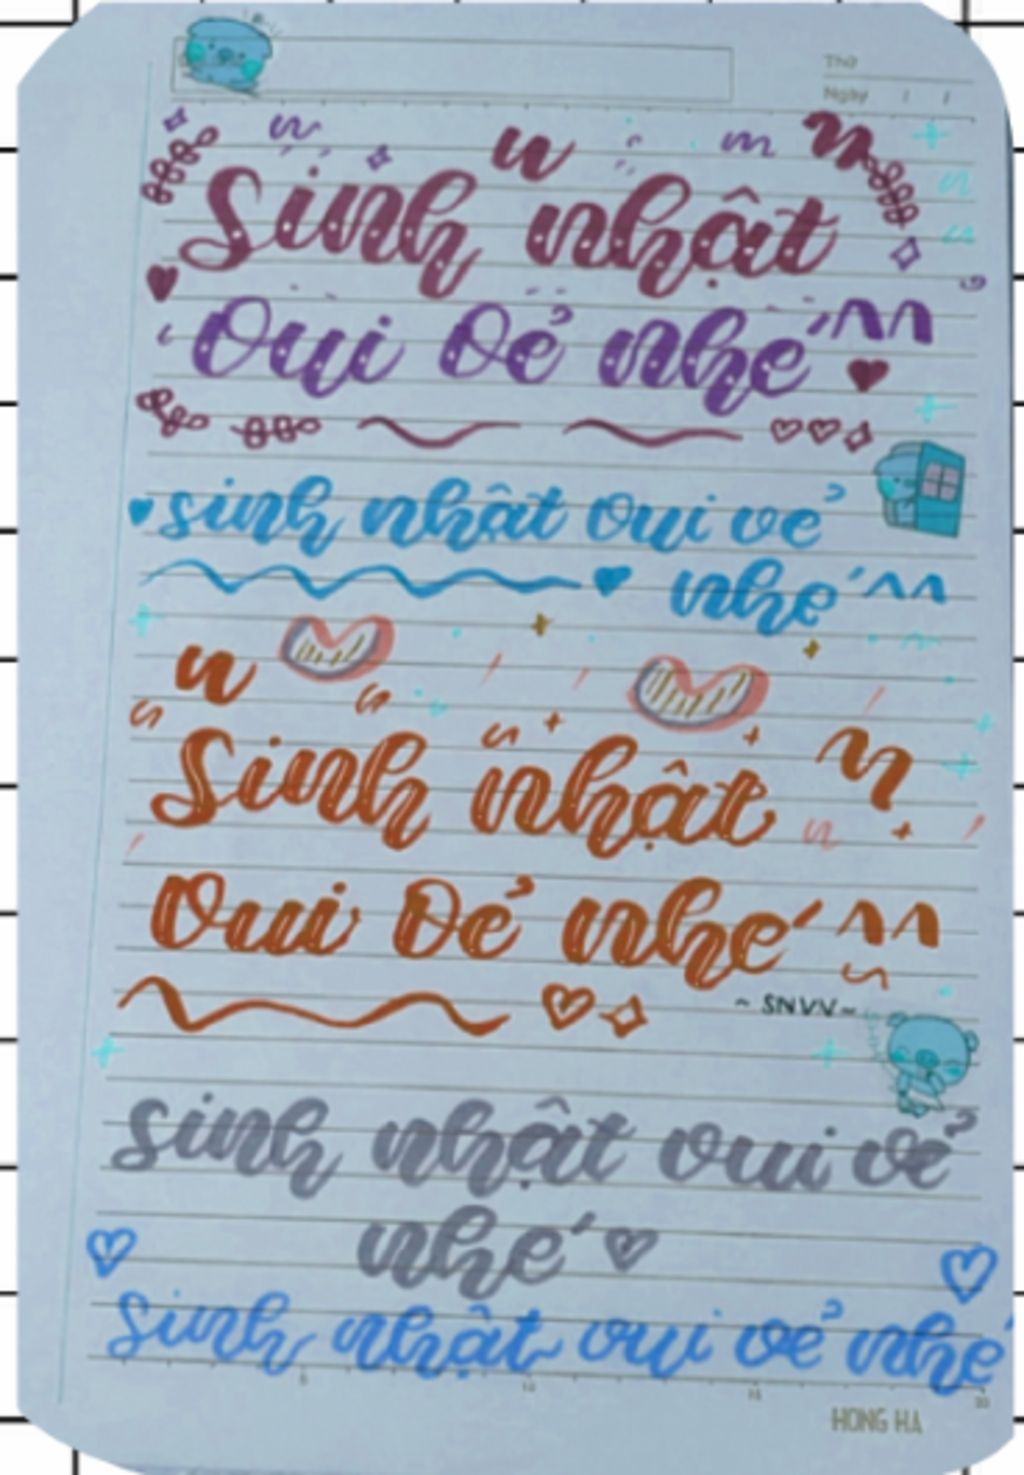 Thứ
Ngày / /
Sinh nhật
Vui Vẻ nhé ^^
sinh nhật vui vẻ
nhé ^^
Sinh nhật
Vui Vẻ nhé ^^
~ SNVV ~
sinh nhật vui vẻ
nhé
sinh nhật vui vẻ nhé
5 10 15 20
HONG HA